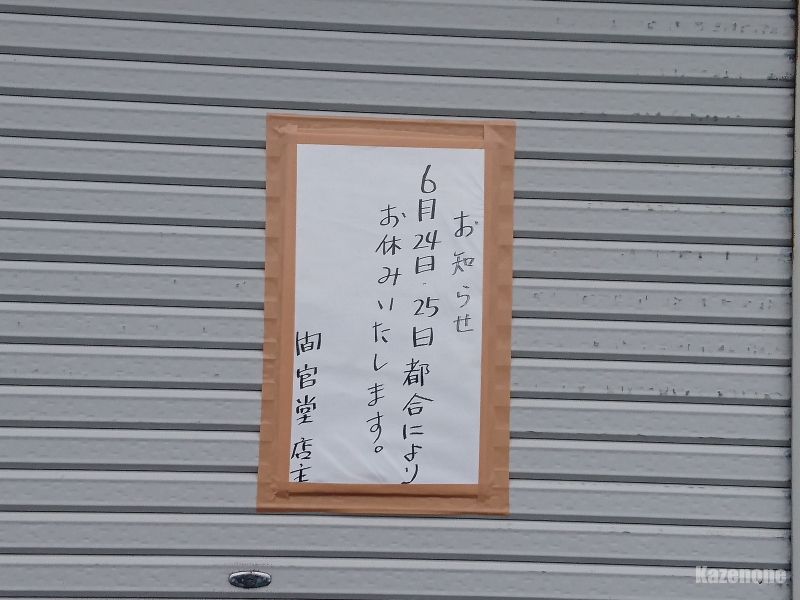 お知らせ
6月24日・25日都合により
お休みいたします。
間宮堂店主
Kazenone